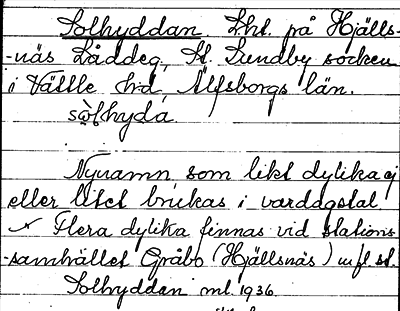 Solhyddan Lht. på Hjälls-
-näs Låddeg, St. Lundby socken
i Vättle hd, Älfsborgs län.
sò̤lhyda
Nynamn, som likt dylika ej
eller litet brukas i vardagstal.
Flera dylika finnas vid stations-
-samhället Gråbo (Hjällsnäs) m.fl. st.
Solhyddan ml. 1936.